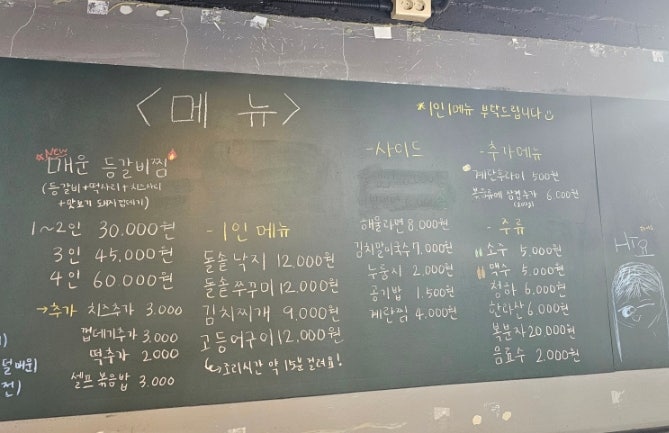 <메 뉴>
*1인 1메뉴 부탁드립니다
NEW
매운 등갈비찜
(등갈비+떡사리+치즈사리
+맛보기 돼지껍데기)
1~2인 30.000원
3인 45.000원
4인 60.000원
→추가 치즈추가 3.000
껍데기추가 3.000
떡추가 2000
셀프 볶음밥 3.000
-1인 메뉴
돌솥 낙지 12.000원
돌솥 쭈꾸미 12.000원
김치찌개 9.000원
고등어구이 12.000원
↳조리시간 약 15분 걸려요!
-사이드
해물라면 8.000원
김치말이국수 7.000원
누룽지 2.000원
공기밥 1.500원
계란찜 4.000원
-추가메뉴
계란후라이 500원
볶음용에 삼겹추가 6.000원
-주류
소주 5.000원
맥주 5.000원
청하 6.000원
한라산 6.000원
복분자 20.000원
음료수 2.000원
Hi요
덜매운)
전)